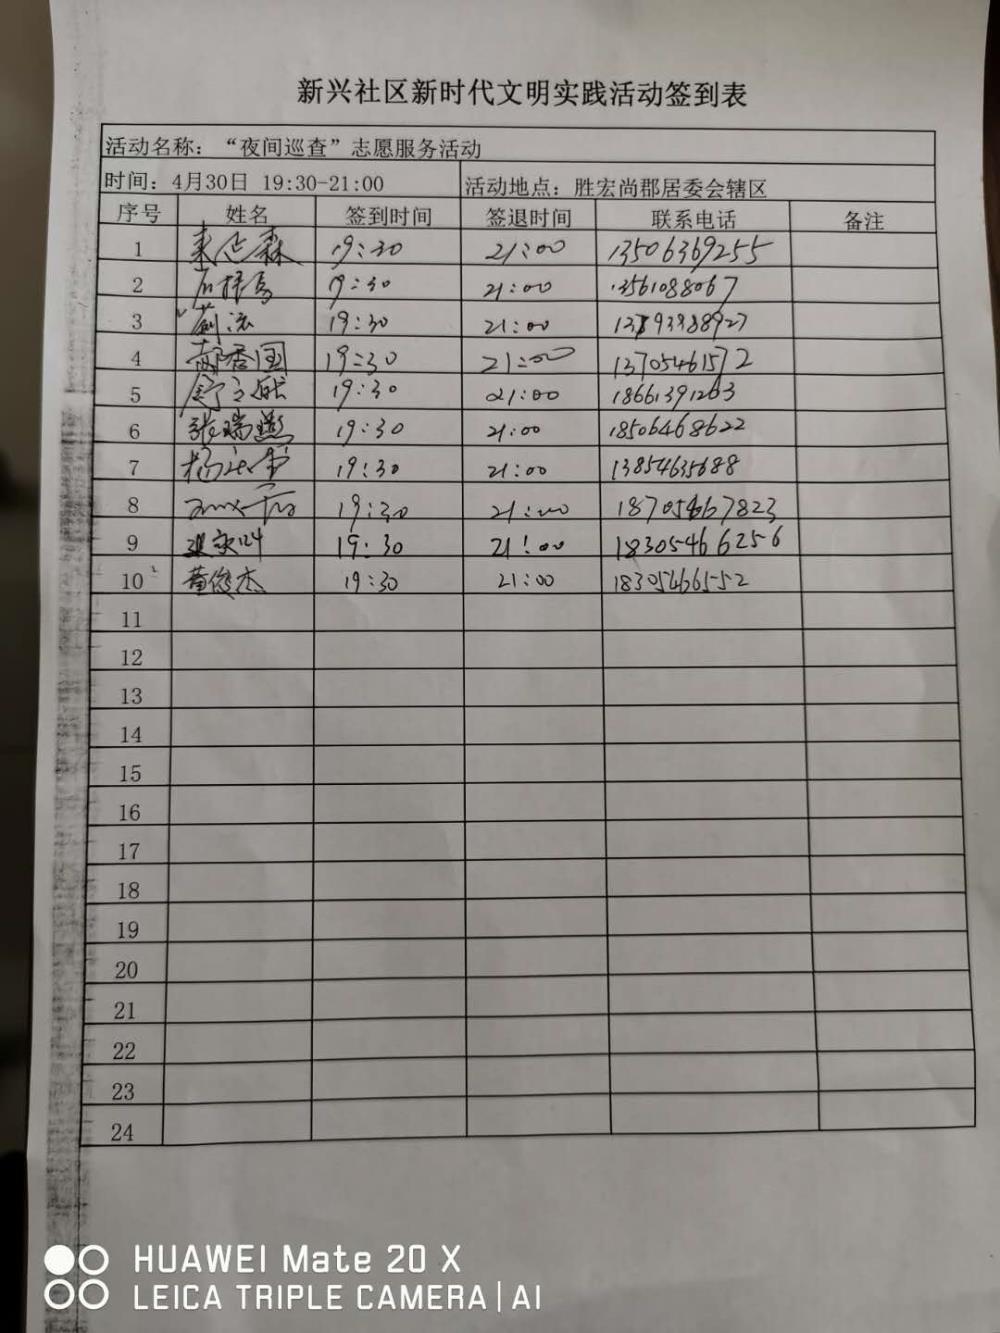 新兴社区新时代文明实践活动签到表
活动名称：“夜间巡查”志愿服务活动
时间：4月30日 19:30-21:00 活动地点：胜宏尚郡居委会辖区
序号 姓名 签到时间 签退时间 联系电话 备注
1 19:30 21:00 13506369255
2 19:30 21:00 13561088067
3 19:30 21:00
4 郝香国 19:30 21:00 13705461572
5 19:30 21:00 18661391263
6 张瑞 19:30 21:00 18506468622
7 杨 19:30 21:00 13854635688
8 19:30 21:00 18705467823
9 19:30 21:00 18305466256
10 董俊杰 19:30 21:00 18305466552
11
12
13
14
15
16
17
18
19
20
21
22
23
24
HUAWEI Mate 20 X
LEICA TRIPLE CAMERA | AI